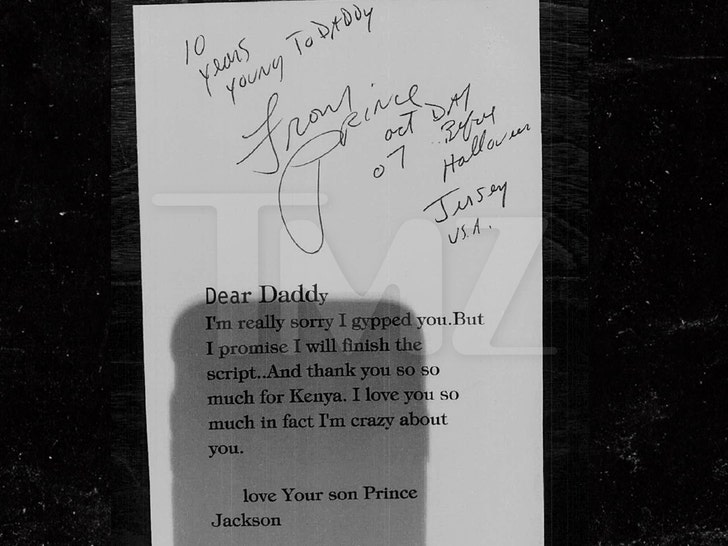 10
years
young To DADDY
From
Prince
oct DAY
07 Before
Halloween
Jersey
USA.
TMZ
Dear Daddy
I'm really sorry I gypped you.But
I promise I will finish the
script..And thank you so so
much for Kenya. I love you so
much in fact I'm crazy about
you.
love Your son Prince
Jackson